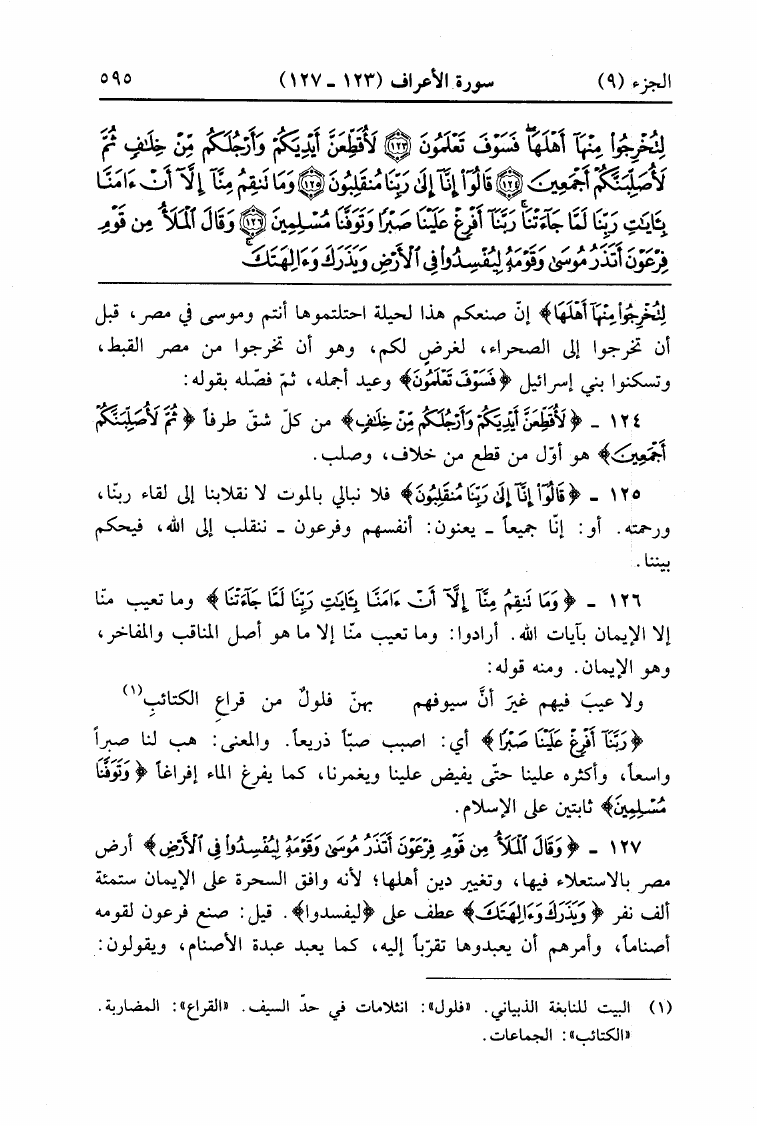 الجزء (٩) سورة الأعراف (١٢٣ - ١٢٧) ٥٩٥
لِتُخْرِجُوا۟ مِنْهَآ أَهْلَهَا ۖ فَسَوْفَ تَعْلَمُونَ ﴿١٢٣﴾ لَأُقَطِّعَنَّ أَيْدِيَكُمْ وَأَرْجُلَكُم مِّنْ خِلَـٰفٍ ثُمَّ
لَأُصَلِّبَنَّكُمْ أَجْمَعِينَ ﴿١٢٤﴾ قَالُوٓا۟ إِنَّآ إِلَىٰ رَبِّنَا مُنقَلِبُونَ ﴿١٢٥﴾ وَمَا تَنقِمُ مِنَّآ إِلَّآ أَنْ ءَامَنَّا
بِـَٔايَـٰتِ رَبِّنَا لَمَّا جَآءَتْنَا ۚ رَبَّنَآ أَفْرِغْ عَلَيْنَا صَبْرًا وَتَوَفَّنَا مُسْلِمِينَ ﴿١٢٦﴾ وَقَالَ ٱلْمَلَأُ مِن قَوْمِ
فِرْعَوْنَ أَتَذَرُ مُوسَىٰ وَقَوْمَهُۥ لِيُفْسِدُوا۟ فِى ٱلْأَرْضِ وَيَذَرَكَ وَءَالِهَتَكَ ۚ
لِتُخْرِجُوا۟ مِنْهَآ أَهْلَهَا﴾ إنّ صنعكم هذا لحيلة احتلتموها أنتم وموسى في مصر، قبل
أن تخرجوا إلى الصحراء، لغرضٍ لكم، وهو أن تخرجوا من مصر القبط،
وتسكنوا بني إسرائيل ﴿فَسَوْفَ تَعْلَمُونَ﴾ وعيد أجمله، ثمّ فصّله بقوله:
١٢٤ - ﴿لَأُقَطِّعَنَّ أَيْدِيَكُمْ وَأَرْجُلَكُم مِّنْ خِلَـٰفٍ﴾ من كلّ شقّ طرفاً ﴿ثُمَّ لَأُصَلِّبَنَّكُمْ
أَجْمَعِينَ﴾ هو أوّل من قطع من خلاف، وصلب.
١٢٥ - ﴿قَالُوٓا۟ إِنَّآ إِلَىٰ رَبِّنَا مُنقَلِبُونَ﴾ فلا نبالي بالموت لانقلابنا إلى لقاء ربنّا،
ورحمته. أو: إنّا جميعاً ـ يعنون: أنفسهم وفرعون ـ ننقلب إلى الله، فيحكم
بيننا.
١٢٦ - ﴿وَمَا تَنقِمُ مِنَّآ إِلَّآ أَنْ ءَامَنَّا بِـَٔايَـٰتِ رَبِّنَا لَمَّا جَآءَتْنَا﴾ وما تعيب منّا
إلا الإيمان بآيات الله. أرادوا: وما تعيب منّا إلا ما هو أصل المناقب والمفاخر،
وهو الإيمان. ومنه قوله:
ولا عيبَ فيهم غيرَ أنَّ سيوفهم بهنّ فلولٌ من قراعِ الكتائبِ(١)
﴿رَبَّنَآ أَفْرِغْ عَلَيْنَا صَبْرًا﴾ أي: اصبب صبّاً ذريعاً. والمعنى: هب لنا صبراً
واسعاً، وأكثره علينا حتّى يفيض علينا ويغمرنا، كما يفرغ الماء إفراغاً ﴿وَتَوَفَّنَا
مُسْلِمِينَ﴾ ثابتين على الإسلام.
١٢٧ - ﴿وَقَالَ ٱلْمَلَأُ مِن قَوْمِ فِرْعَوْنَ أَتَذَرُ مُوسَىٰ وَقَوْمَهُۥ لِيُفْسِدُوا۟ فِى ٱلْأَرْضِ﴾ أرض
مصر بالاستعلاء فيها، وتغيير دين أهلها؛ لأنه وافق السحرة على الإيمان ستمئة
ألف نفر ﴿وَيَذَرَكَ وَءَالِهَتَكَ﴾ عطف على ﴿ليفسدوا﴾. قيل: صنع فرعون لقومه
أصناماً، وأمرهم أن يعبدوها تقرّباً إليه، كما يعبد عبدة الأصنام، ويقولون:
(١) البيت للنابغة الذبياني. «فلول»: انثلامات في حدّ السيف. «القراع»: المضاربة.
«الكتائب»: الجماعات.